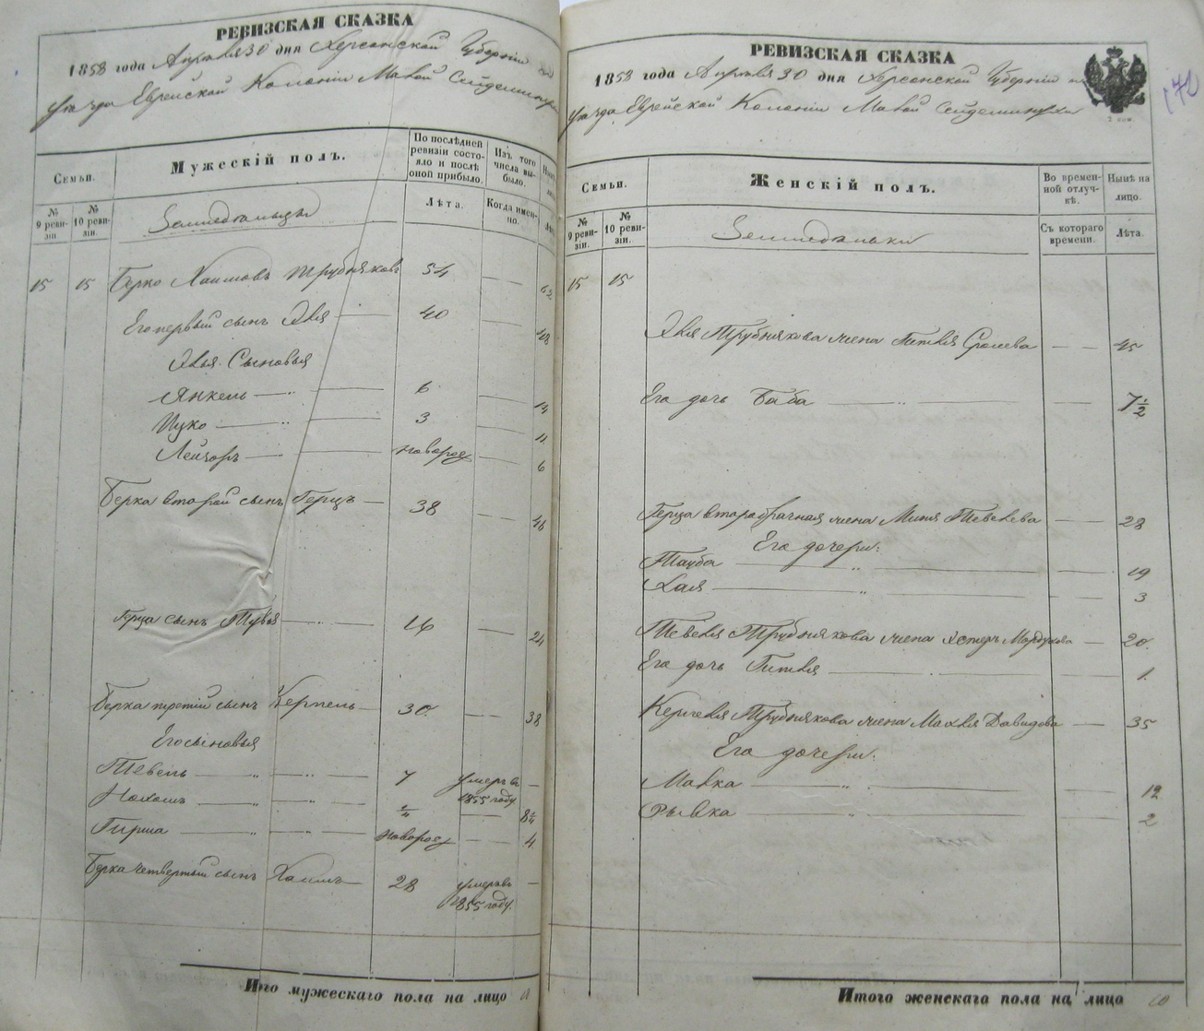 РЕВИЗСКАЯ СКАЗКА
1858 года Апреля 30 дня Херсонской Губернии
уезда Еврейской Колонии Малой Сейдеминухи
Семьи.
Мужескій полъ.
По послѣдней ревизіи состояло и послѣ оной прибыло.
Изъ того числа выбыло.
№ 9 ревизіи
№ 10 ревизіи.
Лѣта.
Когда именно.
Земледельцы
15 15 Берко Хаимовъ Трубняковъ 54 — 62
Его первый сынъ Эвля — 40 — 48
Эвля Сыновья
Янкель — 6 — 14
Ицко — 3 — 11
Лейзоръ — новорож — 6
Берка второй сынъ Герцъ — 38 — 46
Герца сынъ — 16 — 24
Берка третій сынъ 30 — 38
Его сыновья
Тевель — 7 умеръ въ 1855 году —
— 8¼
Гирша — новорож — 4
Берка четвертый сынъ Хаимъ — 28 умеръ въ 1855 году. —
Итого мужескаго пола на лицо
РЕВИЗСКАЯ СКАЗКА
1858 года Апреля 30 дня Херсонской Губернии
уезда Еврейской Колонии Малой Сейдеминухи
Семьи.
Женскій полъ.
Во временной отлучкѣ.
Нынѣ на лицо.
№ 9 ревизіи.
№ 10 ревизіи.
Съ котораго времени.
Лѣта.
Земледельки
15 15
Эвля Трубнякова жена Гитля Сролева — 45
Его дочь Баба — 7½
Герца второбрачная жена — 28
Его дочери:
Тауба — 19
Хая — 3
Тевеля Трубнякова жена Эстеръ — 20
Его дочь Гитля — 1.
Трубнякова жена Махля Давидова — 35
Его дочери:
Малка — 12
Рывка — 2
Итого женскаго пола на лицо